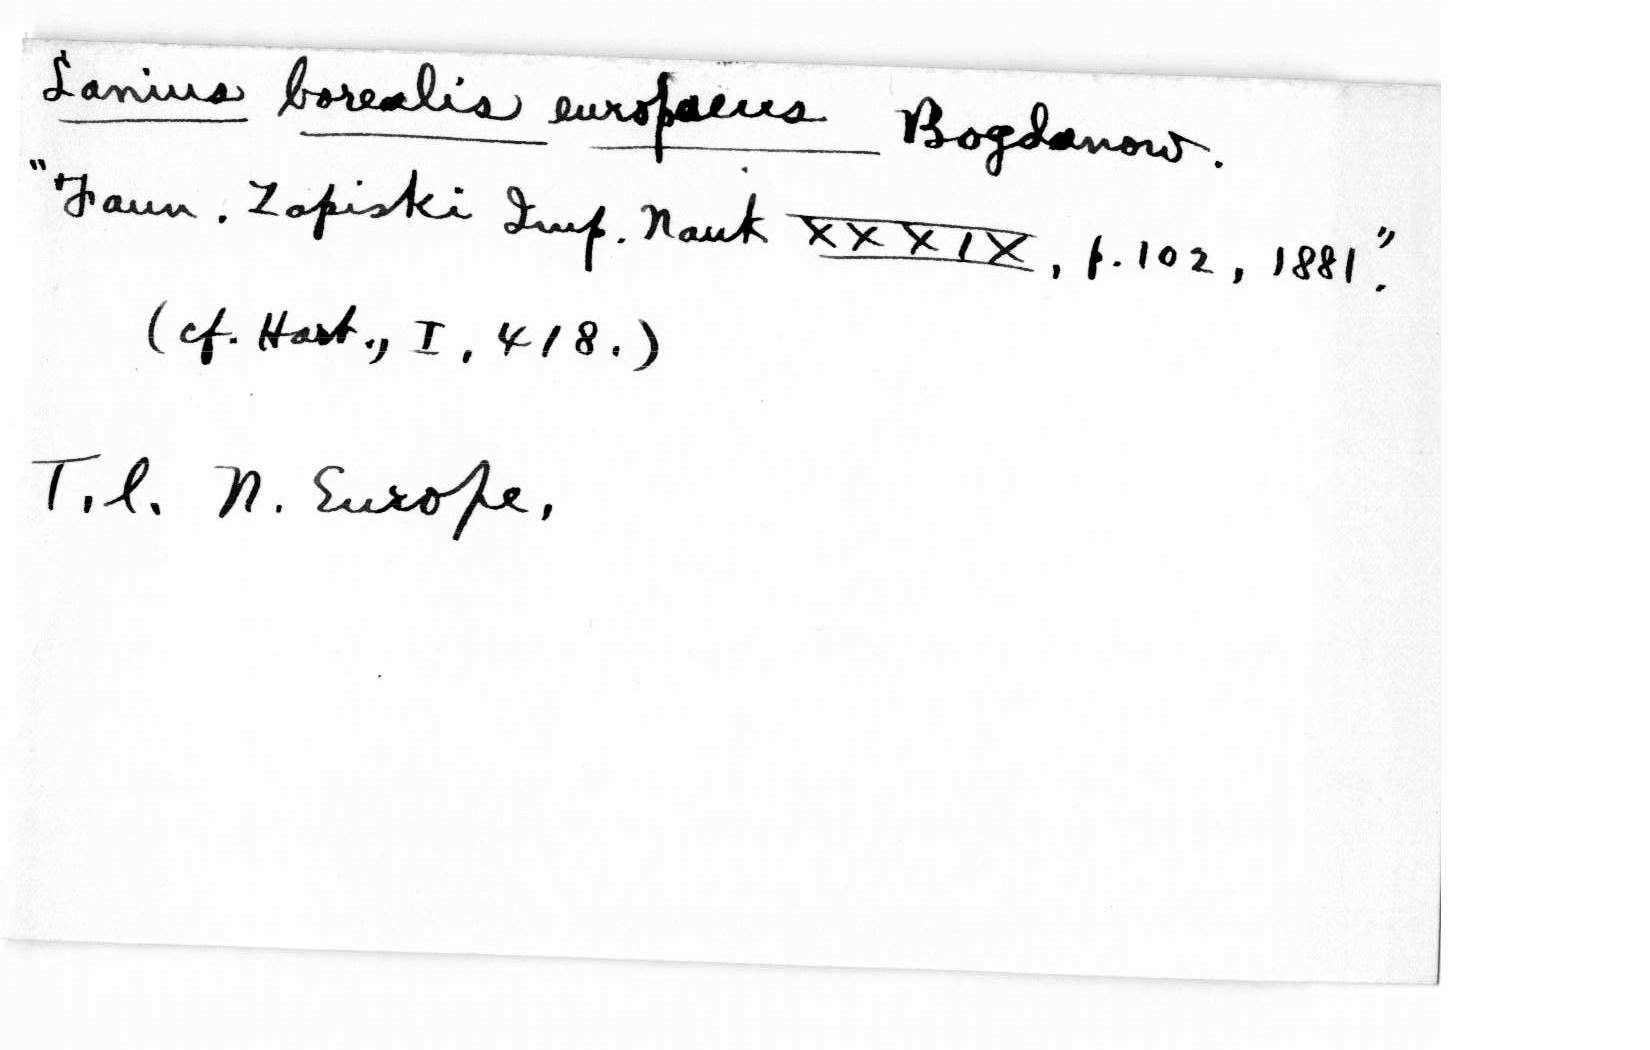 Lanius borealis europaeus Bogdanow.
"Faun. Zapiski Imp. Nauk XXXIX, p. 102, 1881".
(cf. Hart., I, 418.)
T.l. N. Europe.